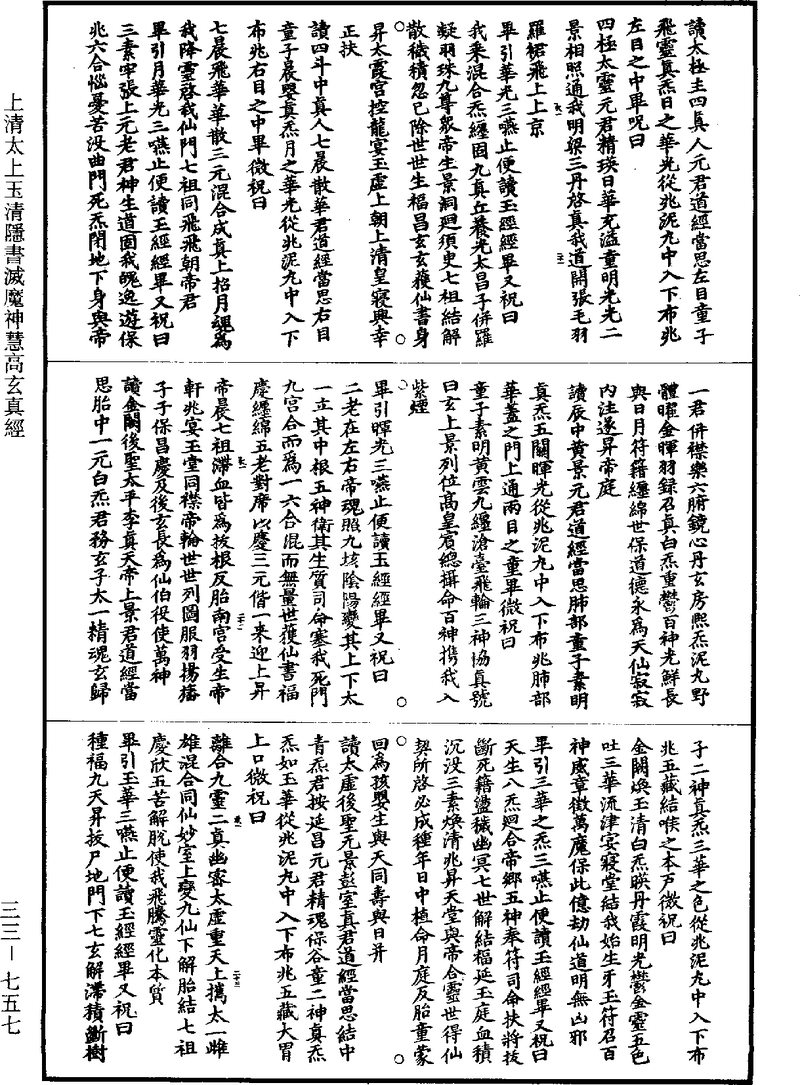 讀太極主四真人元君道經當思左目童子
飛靈真炁日之華光從兆泥丸中入下布兆
左目之中畢呪曰
四極太靈元君精瑛日華充溢童明光光二
景相照通我明梁三丹啓真我道開張毛羽
羅裙飛上上京
畢引華光三嚥止便讀玉經經畢又祝曰
我乘混合炁纏固九真丘養光太昌子併羅
凝羽珠九尊衆帝生景洞迴須史七祖結解
散穢積忽已除世世生福昌玄玄獲仙書身
昇太霞宮控龍宴玉虛上朝上清皇寢興幸
正扶
讀四斗中真人七晨散華君道經當思右目
童子晨嬰真炁月之華光從兆泥丸中入下
布兆右目之中畢微祝曰
七晨飛華華散三元混合成真上招月魂爲
我降靈啓我仙門七祖同飛飛朝帝君
畢引月華光三嚥止便讀玉經經畢又祝曰
三素牢張上元老君神生道固我魄逸遊保
兆六合惱憂苦没曲門死炁閉地下身與帝
一君併襟樂六腑鏡心丹玄房熙炁泥丸野
體曜金暉羽録召真白炁重鬱百神光鮮長
與日月符籍纏綿世保道德永爲天仙寂寂
内注遂昇帝庭
讀辰中黄景元君道經當思肺部童子素明
真炁五關暉光從兆泥丸中入下布兆肺部
華蓋之門上通兩目之童畢微祝曰
童子素明黄雲九纏滄臺飛輪三神協真號
曰玄上景列位高皇賓總攝命百神携我入
紫煙
畢引暉光三嚥止便讀玉經經畢又祝曰
二老在左右帝魂照九垓陰陽變其上下太
一立其中根五神衛其生質司命塞我死門
九宮合而爲一六合混而無量世獲仙書福
慶纏綿五老對席以慶三元偕一來迎上昇
帝晨七祖滯血皆爲拔根反胎南宮受生帝
軒兆宴玉堂同襟帝輪世世列圖服羽揚旛
子子保昌慶及後玄長爲仙伯役使萬神
讀金闕後聖太平李真天帝上景君道經當
思胎中一元白炁君務玄子太一精魂玄歸
子二神真炁三華之色從兆泥丸中入下布
兆五藏結喉之本戸微祝曰
金闕煥玉清白炁映丹霞明光鬱金靈五色
吐三華流津宴寢堂結我始生牙玉符召百
神威章徵萬魔保此億劫仙道明無凶邪
畢引三華之炁三嚥止便讀玉經經畢又祝曰
天生八炁迴合帝鄉五神奉符司命扶將拔
斷死籍盪穢幽冥七世解結福延玉庭血積
沉没三素煥清兆昇天堂與帝合靈世得仙
契所啓必成種年日中植命月庭反胎童蒙
回爲孩嬰生與天同壽與日并
讀太虛後聖元景彭室真君道經當思結中
青炁君按延昌元君精魂保谷童二神真炁
炁如玉華從兆泥丸中入下布兆五藏大胃
上口微祝曰
離合九靈二真幽密太虛重天上攜太一雌
雄混合同仙妙室上變九仙下解胎結七祖
慶欣五苦解脫使我飛騰靈化本質
畢引玉華三嚥止便讀玉經經畢又祝曰
種福九天昇拔尸地門下七玄解滯積斷樹
上清太上玉清隱書滅魔神慧高玄真經
三三—七五七